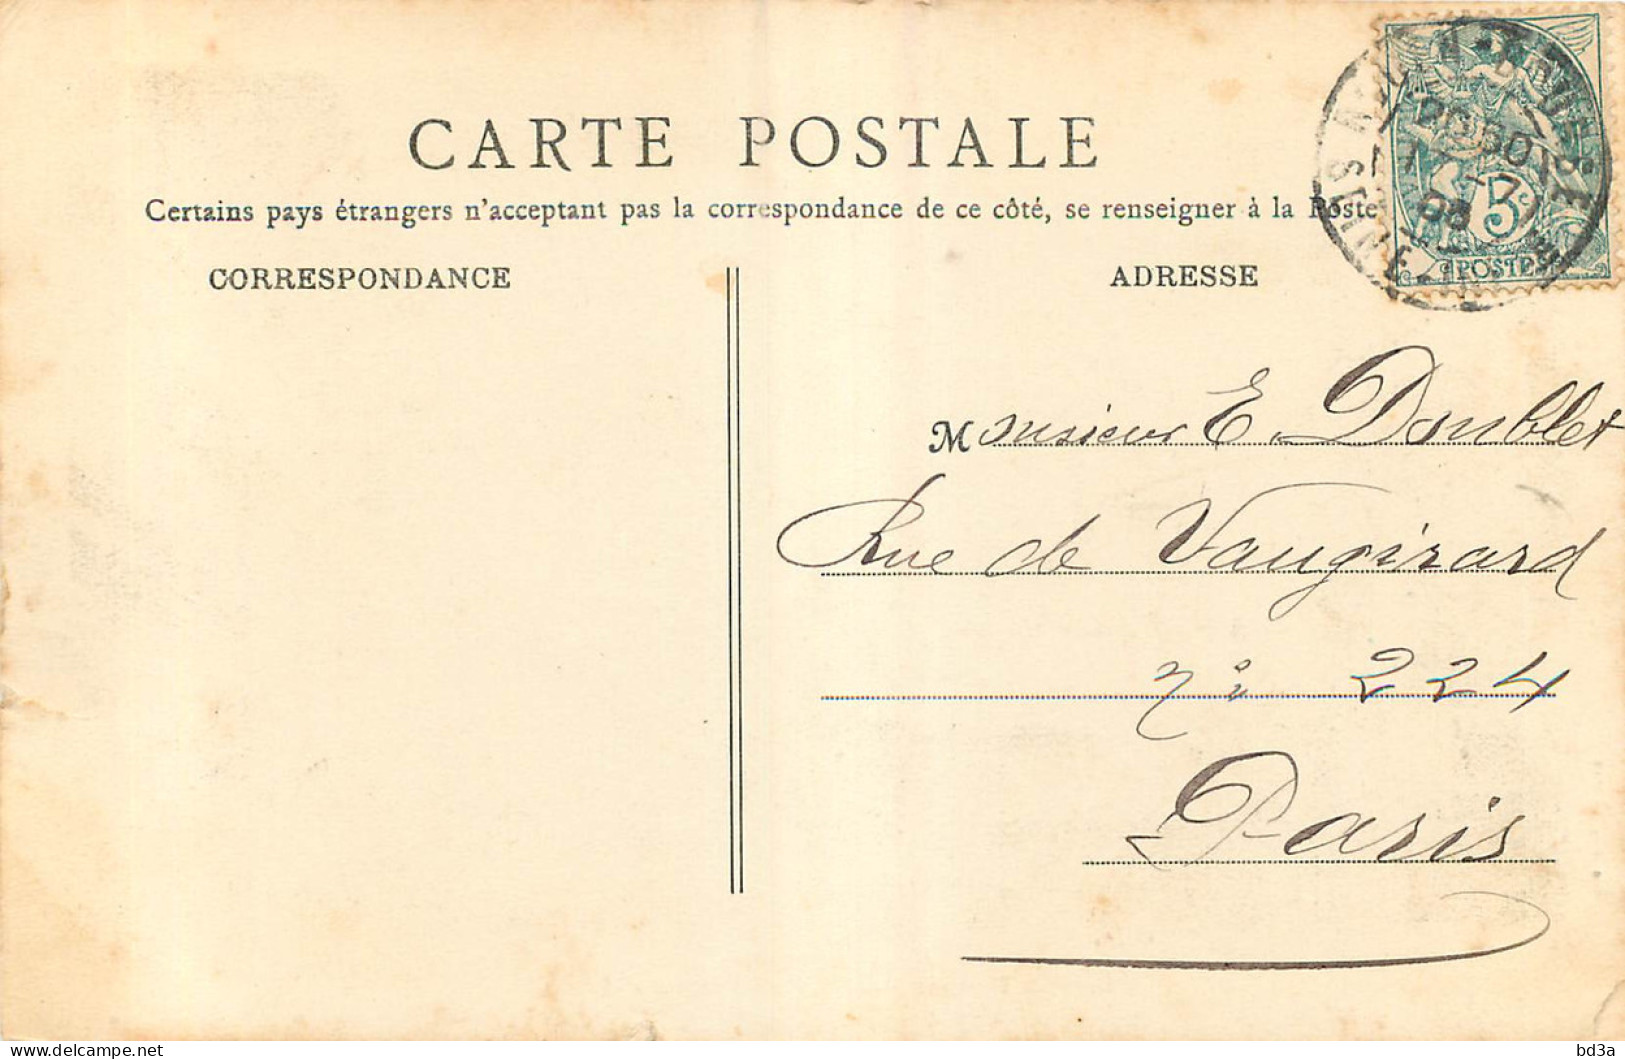 CARTE POSTALE
Certains pays étrangers n'acceptant pas la correspondance de ce côté, se renseigner à la Poste
CORRESPONDANCE
ADRESSE
20 30
7 - 7
08
5c
POSTES
Monsieur E. Doublet
Rue de Vaugirard
no 224
Paris
www.delcampe.net
bd3a